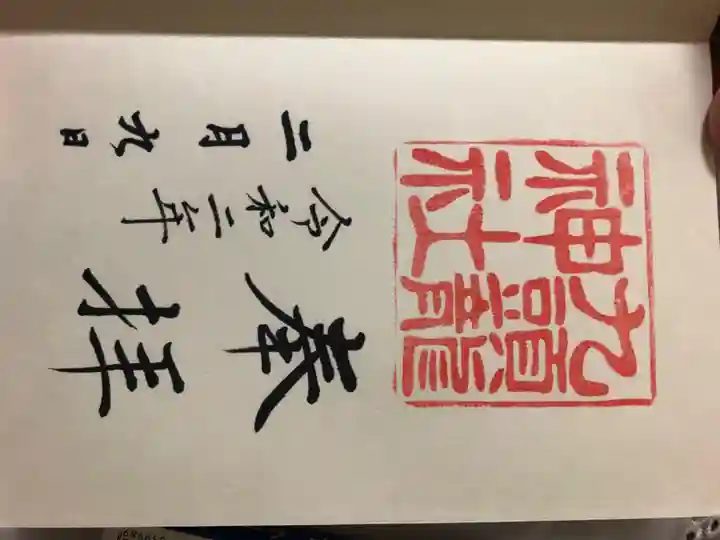 九頭龍
神社
奉拝
令和二年
二月九日